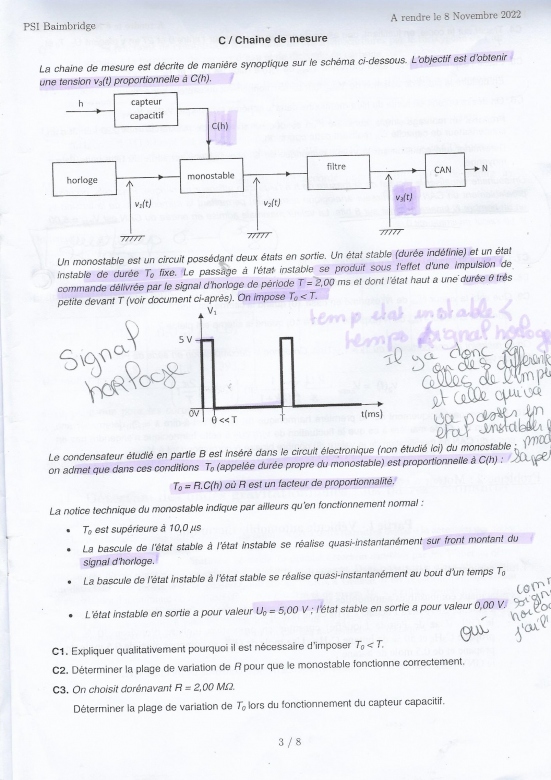 PSI Baimbridge
A rendre le 8 Novembre 2022
C / Chaine de mesure
La chaine de mesure est décrite de manière synoptique sur le schéma ci-dessous. L'objectif est d'obtenir
une tension v₃(t) proportionnelle à C(h).
h
capteur
capacitif
C(h)
horloge
monostable
filtre
CAN
N
v₁(t)
v₂(t)
v₃(t)
Un monostable est un circuit possédant deux états en sortie. Un état stable (durée indéfinie) et un état
instable de durée T₀ fixe. Le passage à l'état instable se produit sous l'effet d'une impulsion de
commande délivrée par le signal d'horloge de période T = 2,00 ms et dont l'état haut a une durée θ très
petite devant T (voir document ci-après). On impose T₀ < T.
temp etat instable <
temps signal horloge
Signal
horloge
V₁
5 V
0V
θ << T
T
t(ms)
Il y a donc
on des different
celles de l'imp
et celle qui va
va passer en
etat instable
Le condensateur étudié en partie B est inséré dans le circuit électronique (non étudié ici) du monostable ;
on admet que dans ces conditions T₀ (appelée durée propre du monostable) est proportionnelle à C(h) :
T₀ = R.C(h) où R est un facteur de proportionnalité.
La notice technique du monostable indique par ailleurs qu'en fonctionnement normal :
• T₀ est supérieure à 10,0 µs
• La bascule de l'état stable à l'état instable se réalise quasi-instantanément sur front montant du
signal d'horloge.
• La bascule de l'état instable à l'état stable se réalise quasi-instantanément au bout d'un temps T₀
• L'état instable en sortie a pour valeur U₀ = 5,00 V ; l'état stable en sortie a pour valeur 0,00 V.
oui
C1. Expliquer qualitativement pourquoi il est nécessaire d'imposer T₀ < T.
C2. Déterminer la plage de variation de R pour que le monostable fonctionne correctement.
C3. On choisit dorénavant R = 2,00 MΩ.
Déterminer la plage de variation de T₀ lors du fonctionnement du capteur capacitif.
3 / 8